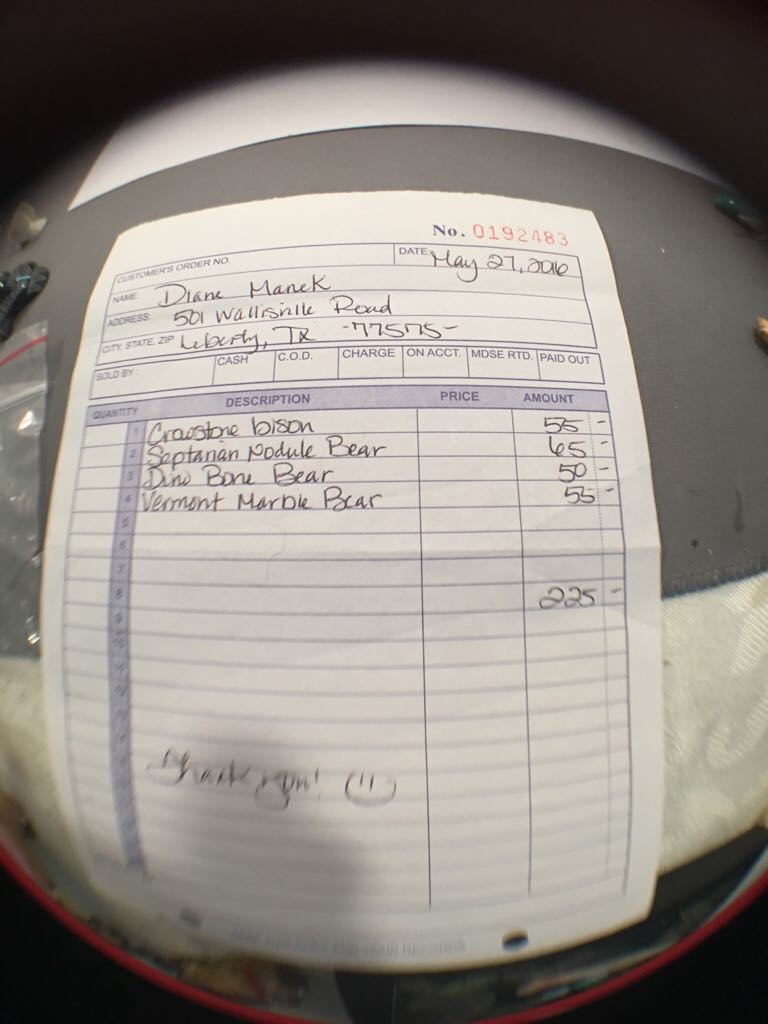 No. 0192483
CUSTOMER'S ORDER NO. DATE: May 27, 2016
NAME: Diane Manek
ADDRESS: 501 Wallisville Road
CITY, STATE, ZIP Liberty, TX -77575-
SOLD BY: CASH C.O.D. CHARGE ON ACCT. MDSE RTD. PAID OUT
QUANTITY DESCRIPTION PRICE AMOUNT
1 bison 55 -
2 Septarian Nodule Bear 65 -
3 Dino Bone Bear 50 -
4 Vermont Marble Bear 55 -
5
6
7
8 225 -
9
Thank you!